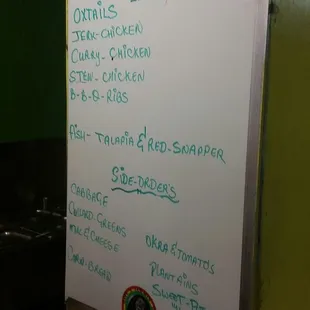 OXTAILS
JERK-CHICKEN
CURRY-CHICKEN
STEW-CHICKEN
B-B-Q-RIBS
FISH-TALAPIA & RED-SNAPPER
SIDE-ORDER'S
CABBAGE
COLLARD-GREENS
MAC & CHEESE
CORN-BREAD
OKRA & TOMATOS
PLANTAINS
SWEET-